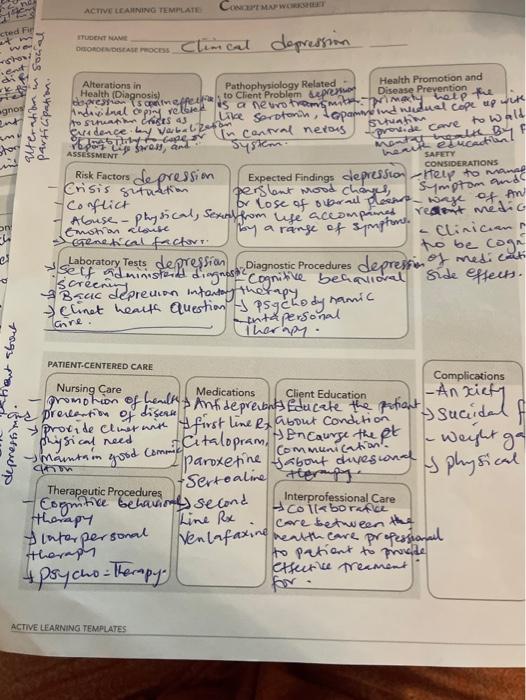 ACTIVE LEARNING TEMPLATE: CONCEPT MAP WORKSHEET
STUDENT NAME
DISORDER/DISEASE PROCESS Clinical depression
alteration in social
participation.
Alterations in
Health (Diagnosis)
depression is an ineffective
individual coping related
to situation crises as
evidence by Verbalization
of inability to cope or
Pathophysiology Related
to Client Problem depression
is a neurotransmitter
Like Serotonin, dopamine
in central nervous
System.
Health Promotion and
Disease Prevention
primarily help the
individual cope up with
situation
- provide care to
mental health by
health education
ASSESSMENT
Risk Factors depression
- Crisis situation
- Conflict
- Abuse - physical, Sexual
Emotion abuse
- Genetical factors.
Expected Findings depression
persistent mood changes,
or Lose of overall pleasure
from life accompanied
by a range of symptoms.
SAFETY
CONSIDERATIONS
- Help to manage
Symptom and
medic
- Clinician
to be cogn
of medicati
side effects.
Laboratory Tests depression
Self administered diagnostic
Screening
Basic depression
health Question
Diagnostic Procedures depression
Cognitive behavioral
therapy
psychodynamic
therapy.
PATIENT-CENTERED CARE
Nursing Care
- promotion of health
- prevention of disease
provide client with
physical need
maintain good commu
Medications
Antidepressant
first line Rx
Citalopram,
paroxetine
- Sertoaline
second
Line Rx
Venlafaxine
Client Education
Educate the patient
about Condition
Encourge the pt
communication.
about diversional
therapy
Complications
- Anxiety
Sucidal
- Weight ga
physical
Therapeutic Procedures
- Cognitive behavioral
therapy
Interpersonal
therapy
psycho-Therapy.
Interprofessional Care
Collaborative
care between the
health care professional
to patient to provide
effective treament
for.
ACTIVE LEARNING TEMPLATES